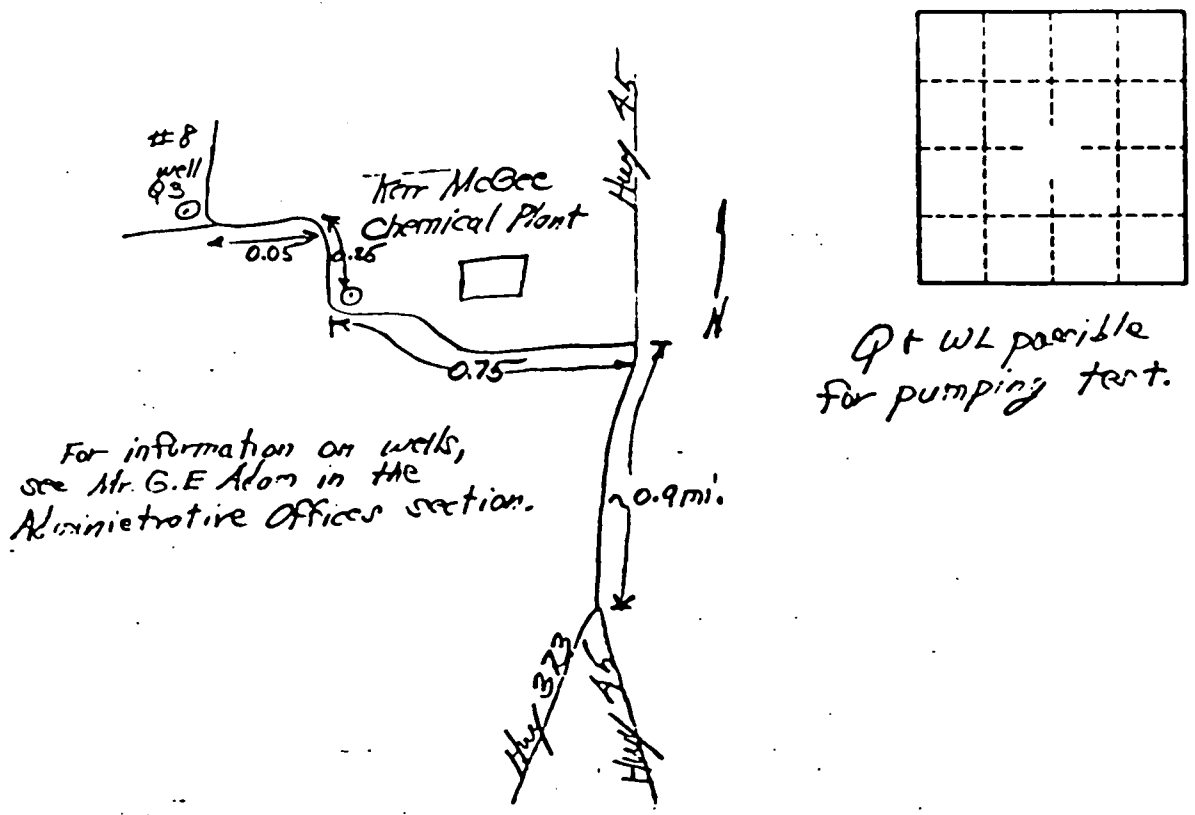 #8
well
Q3
Kerr McGee
Chemical Plant
0.05
0.25
0.75
Hwy 45
N
Q + WL possible
for pumping test.
For information on wells,
see Mr. G.E Adam in the
Administrative Offices section.
~0.9 mi.
Hwy 373
Hwy 45